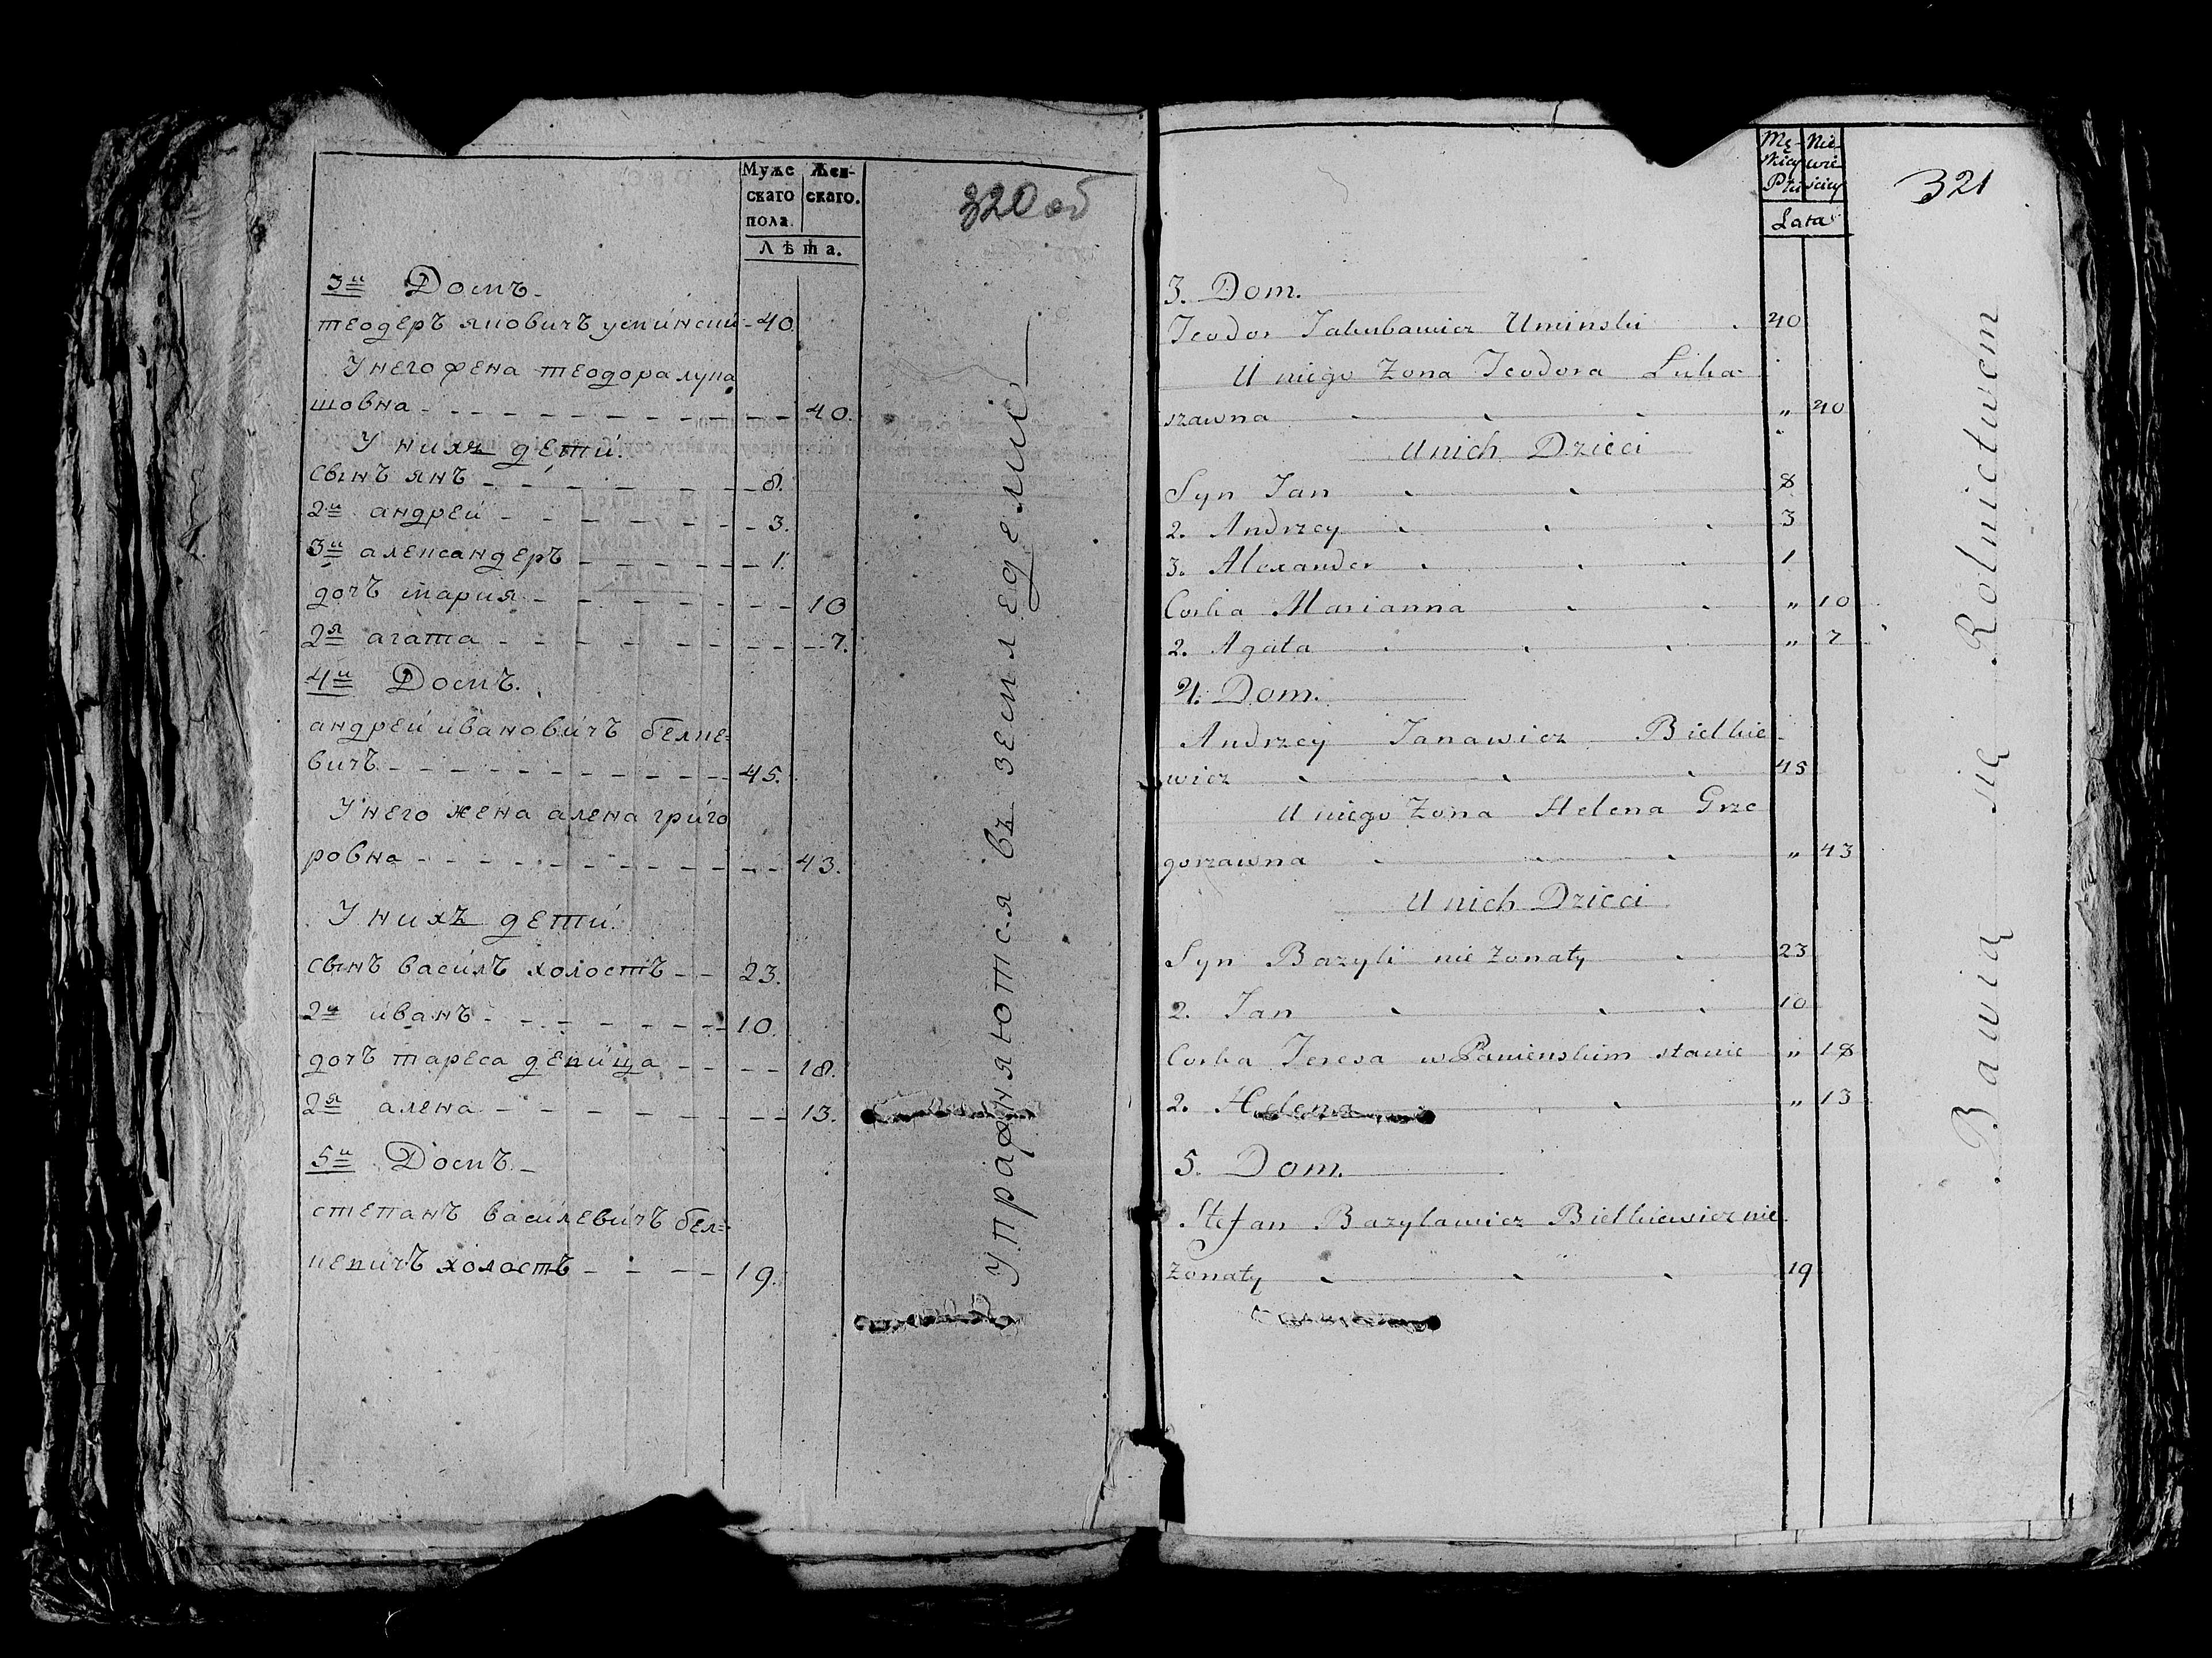 Муже
скаго
пола.
Жен-
скаго.
Лѣта.
320 об
3й Домъ.
теодеръ яковичъ уминский 40.
У него жена теодора лука
шовна 40.
У нихъ дети.
сынъ янъ 8.
2й андрей 3.
3й александеръ 1.
дочъ мария 10
2я агата 7.
4й Домъ.
андрей ивановичъ белке=
вичъ 45.
У него жена алена григо
ровна 43.
У нихъ дети.
сынъ василъ холостъ 23.
2й иванъ 10.
дочъ тареса девица 18.
2я алена 13.
5й Домъ.
степанъ василевичъ бел=
кевичъ холостъ 19.
Упражняются въ земледелии
Mę-
skiey
Płci
Nie-
wie-
ściey
Lata
321
3. Dom.
Teodor Jakubawicz Uminski 40
U niego Żona Teodora Luka-
szawna " 40
U nich Dzieci
Syn Jan 8
2. Andrzey 3
3. Alexander 1
Corka Marianna " 10
2. Agata " 7
4. Dom.
Andrzey Janawicz Bielkie-
wicz 45
U niego Żona Helena Grze
gorzawna " 43
U nich Dzieci
Syn Bazyli nie Żonaty 23
2. Jan 10
Corka Teresa w Panienskim stanie " 18
2. Helena " 13
5. Dom.
Stefan Bazylawicz Bielkiewicz nie
Żonaty 19
Bawią się Rolnictwem